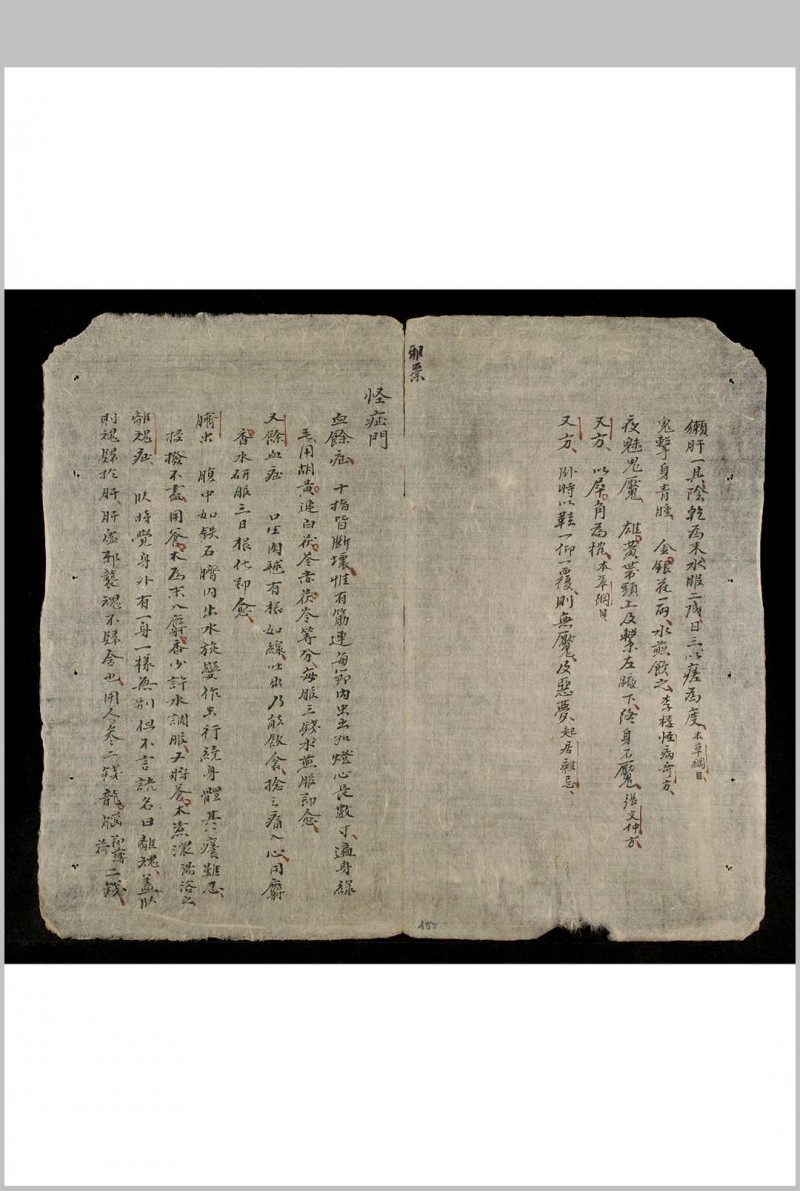 獺肝一具陰乾為末水服二錢日三以瘥為度本草綱目
鬼擊身青腫 金銀花一两水煎飲之李樓怪病奇方
夜魅鬼魘 雄黃帶頭上及繫左腋下終身不魘張文仲方
又方 以犀角為枕本草綱目
又方 卧時以鞋一仰一覆則無魘及惡夢起居雜忌
邪祟
怪症門
血餘症 十指皆断壞惟有筋連每節內虫出如燈心長數寸遍身綠
毛用胡黃連白茯苓赤茯苓等分每服三錢水煎服即愈
又餘血症 口生肉毬有根如線吐出乃能飲食捻之痛入心用麝
香水研服三日根化即愈
臍出 腹中如铁石臍內出水旋變作虫行繞身體甚癢難忍
撥不盡用蒼木為末入麝香少許水調服又將蒼木煮濃湯浴之
離魂症 臥時覺身外有一身一樣無別但不言語名曰離魂盖臥
則魂歸於肝肝虛邪襲魂不歸舍也用人参二錢龍腦二錢
150